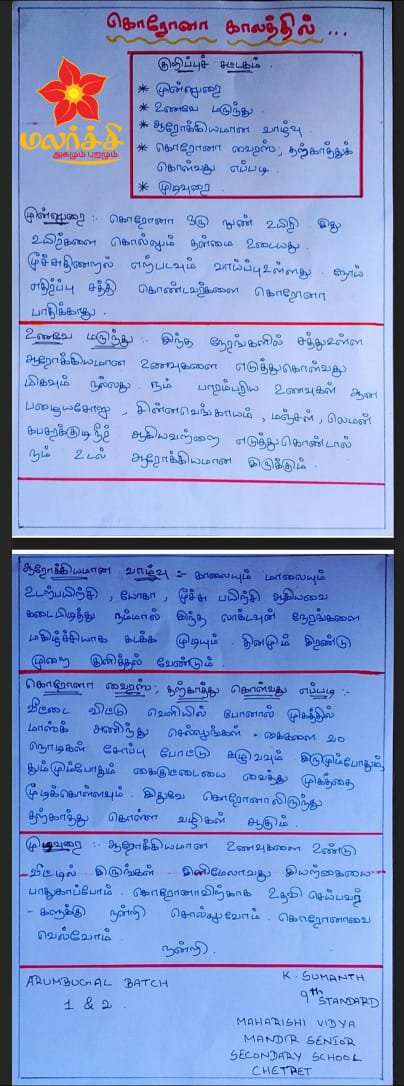 கொரோனா காலத்தில்...
மலர்ச்சி
அகமும் புறமும்
குறிப்புச் சட்டகம்.
* முன்னுரை
* உணவே மருந்து.
* ஆரோக்கியமான வாழ்வு.
* கொரோனா வைரஸ், தற்காத்துக்
கொள்வது எப்படி
* முடிவுரை.
முன்னுரை :- கொரோனா ஒரு நுண் உயிரி. இது
உயிர்களை கொல்லும் தன்மை உடையது.
மூச்சுதிணறல் ஏற்படவும் வாய்ப்புஉள்ளது. நோய்
எதிர்ப்பு சத்தி கொண்டவர்களை கொரோனா
பாதிக்காது.
உணவே மருந்து :- இந்த நேரங்களில் சத்துஉள்ள
ஆரோக்கியமான உணவுகளை எடுத்துகொள்வது
மிகவும் நல்லது. நம் பாரம்பரிய உணவுகள் ஆன
பழையசோறு, சின்னவெங்காயம், மஞ்சள், லெமன்
கபசுரக்குடிநீர் ஆகியவற்றை எடுத்துகொண்டால்
நம் உடல் ஆரோக்கியமான இருக்கும்.
ஆரோக்கியமான வாழ்வு :- காலையும் மாலையும்
உடற்பயிற்சி, யோகா, மூச்சு பயிற்சி ஆகியவை
கடைபிடித்து நம்மால் இந்த லாக்டவுன் நேரங்களை
மகிழ்ச்சியாக கடக்க முடியும். தினமும் இரண்டு
முறை குளித்தல் வேண்டும்.
கொரோனா வைரஸ், தற்காத்து கொள்வது எப்படி :-
வீட்டை விட்டு வெளியில் போனால் முகத்தில்
மாஸ்க் அணிந்து செல்லுங்கள். கைகளை 20
நொடிகள் சோப்பு போட்டு கழுவவும். இருமும்போதும்,
தும்மும்போதும் கைகுட்டையை வைத்து முகத்தை
மூடிக்கொள்ளவும். இதுவே கொரோனாலிருந்து
தற்காத்து கொள்ள வழிகள் ஆகும்.
முடிவுரை :- ஆரோக்கியமான உணவுகளை உண்டு
வீட்டில் இருங்கள். இனிமேலாவது இயற்கையை
பாதுகாப்போம். கொரோனாவிற்காக உதவி செய்பவர்
-களுக்கு நன்றி சொல்லுவோம். கொரோனாவை
வெல்வோம்.
நன்றி.
ARUMBUGAL BATCH
1 & 2.
K. SUMANTH
9th STANDARD
MAHARISHI VIDYA
MANDIR SENIOR
SECONDARY SCHOOL
CHETPET